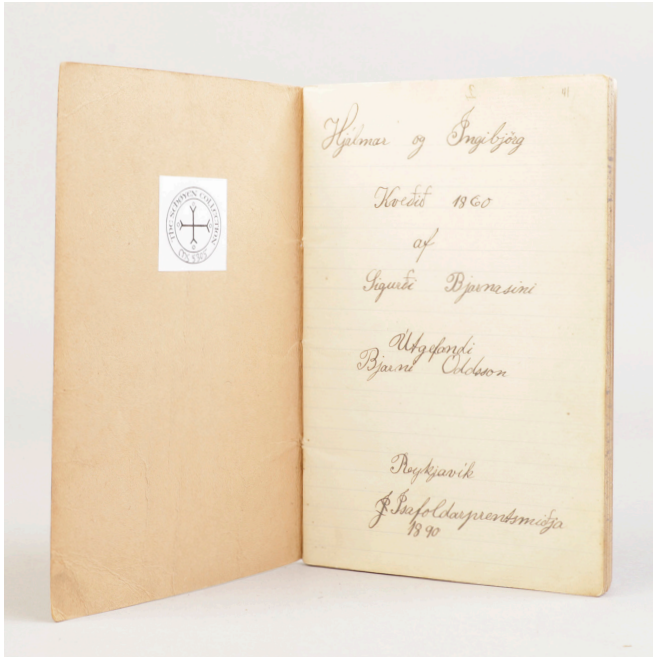 THE SCHØYEN COLLECTION
Hjálmar og Ingibjörg
Kveðið 1860
af
Sigurði Bjarnasini
Útgefandi
Bjarni Oddsson
Reykjavík
Ísafoldarprentsmiðja
1890